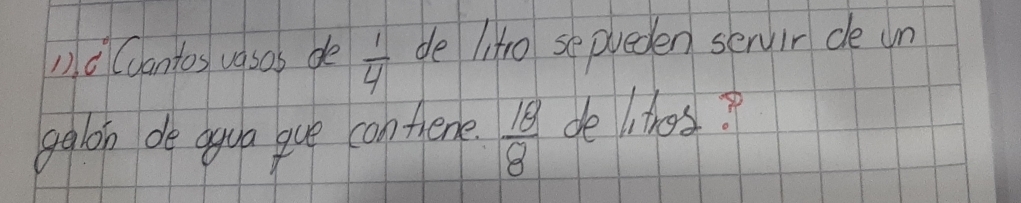 1). ¿Cuantos vasos de 1/4 de litro se pueden servir de un
galón de agua que contiene. 18/8 de litros?